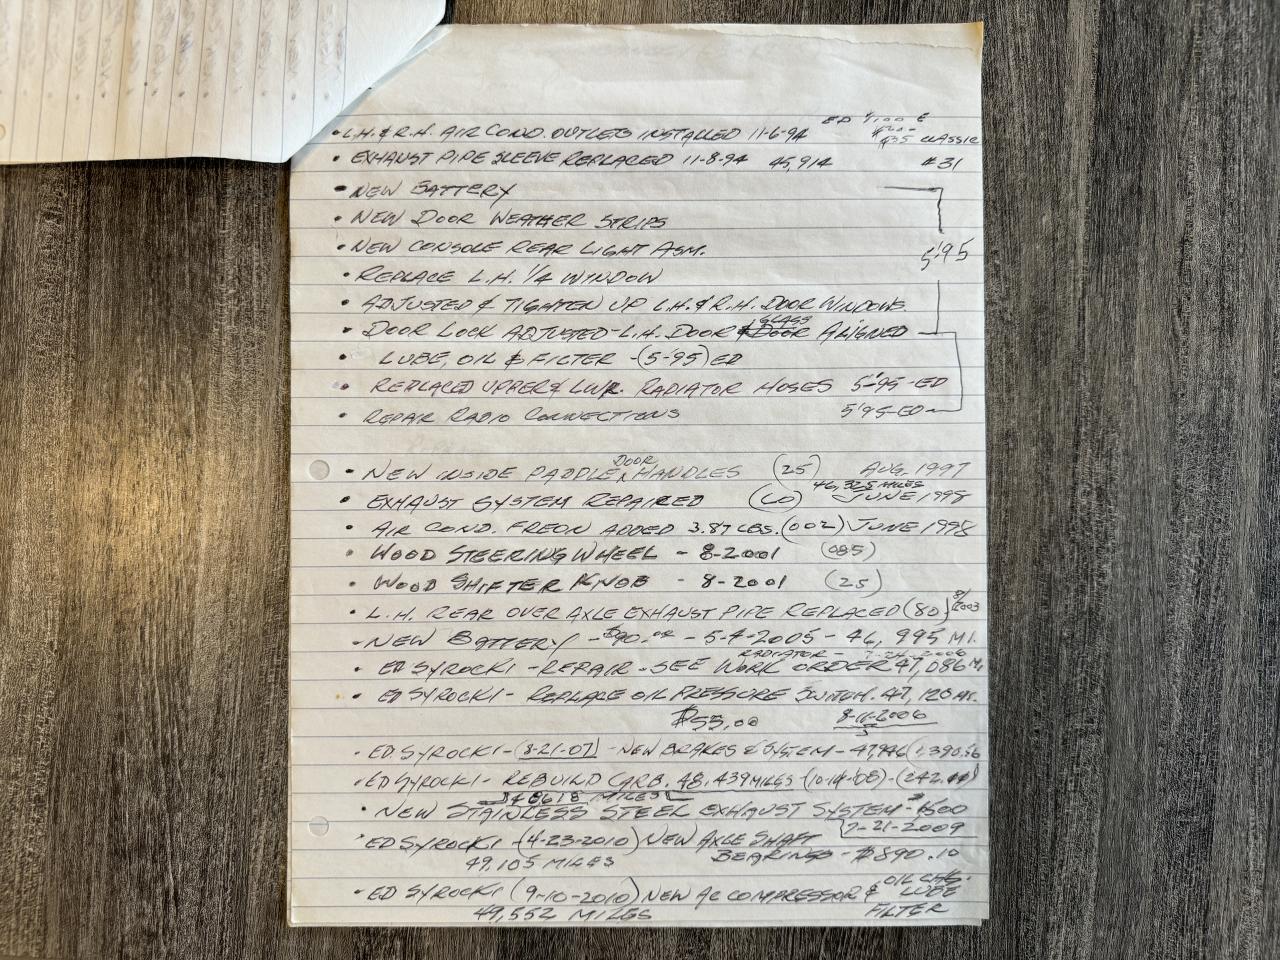 • L.H. & R.H. AIR COND. OUTLETS INSTALLED 11-6-94 ED $100
CLASSIC
• EXHAUST PIPE SLEEVE REPLACED 11-8-94 45,914 #31
• NEW BATTERY
• NEW DOOR WEATHER STRIPS
• NEW CONSOLE REAR LIGHT ASM.
5'95
• REPLACE L.H. 1/4 WINDOW
• ADJUSTED & TIGHTEN UP L.H. & R.H. DOOR WINDOWS
GLASS
• DOOR LOCK ADJUSTED-L.H. DOOR & DOOR ALIGNED
• LUBE, OIL & FILTER -(5-95) ED
• REPLACED UPPER & LWR. RADIATOR HOSES 5'95 -ED
• REPAIR RADIO CONNECTIONS 5'95-ED
DOOR
• NEW INSIDE PADDLE HANDLES (25) AUG. 1997
46,325 MILES
• EXHAUST SYSTEM REPAIRED (60) JUNE 1998
• AIR COND. FREON ADDED 3.87 LBS. (002) JUNE 1998
• WOOD STEERING WHEEL - 8-2001 (085)
• WOOD SHIFTER KNOB - 8-2001 (25)
• L.H. REAR OVER AXLE EXHAUST PIPE REPLACED (80) 8/2003
• NEW BATTERY - $90.00 - 5-4-2005 - 46,995 MI.
RADIATOR - 7-24-2006
• ED SYROCKI - REPAIR - SEE WORK ORDER 47,086 MI
• ED SYROCKI - REPLACE OIL PRESSURE SWITCH. 47,120 MI.
$55.00 8-11-2006
• ED SYROCKI - (8-21-07) - NEW BRAKES & SYSTEM - 47,946
• ED SYROCKI - REBUILD CARB. 48,439 MILES - (10-14-'08) -
48618 MILES
• NEW STAINLESS STEEL EXHAUST SYSTEM - $1500
7-21-2009
• ED SYROCKI - (4-23-2010) NEW AXLE SHAFT
49,105 MILES BEARINGS - $890.10
OIL CHG.
• ED SYROCKI (9-10-2010) NEW AC COMPRESSOR & LUBE
49,552 MILES FILTER